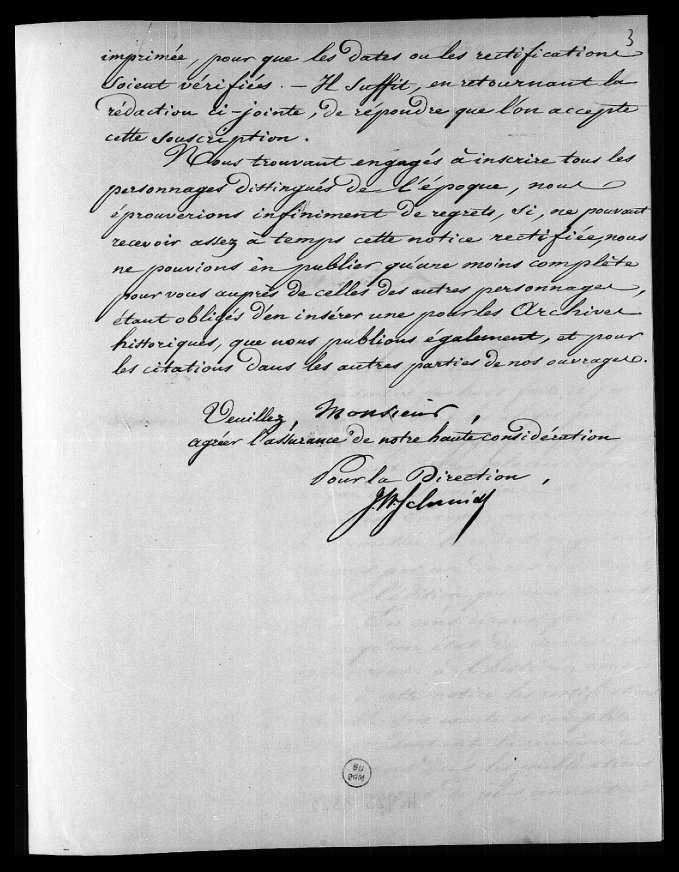 3
imprimée, pour que les dates ou les rectifications
soient vérifiées. — Il suffit, en retournant la
rédaction ci-jointe, de répondre que l'on accepte
cette souscription.
Nous trouvant engagés à inscrire tous les
personnages distingués de l'époque, nous
éprouverions infiniment de regrets, si, ne pouvant
recevoir assez à temps cette notice rectifiée, nous
ne pouvions en publier qu'une moins complète
pour vous auprès de celles des autres personnages,
étant obligés d'en insérer une pour les Archives
historiques, que nous publions également, et pour
les citations dans les autres parties de nos ouvrages.
Veuillez, Monsieur,
agréer l'assurance de notre haute considération
Pour la Direction,